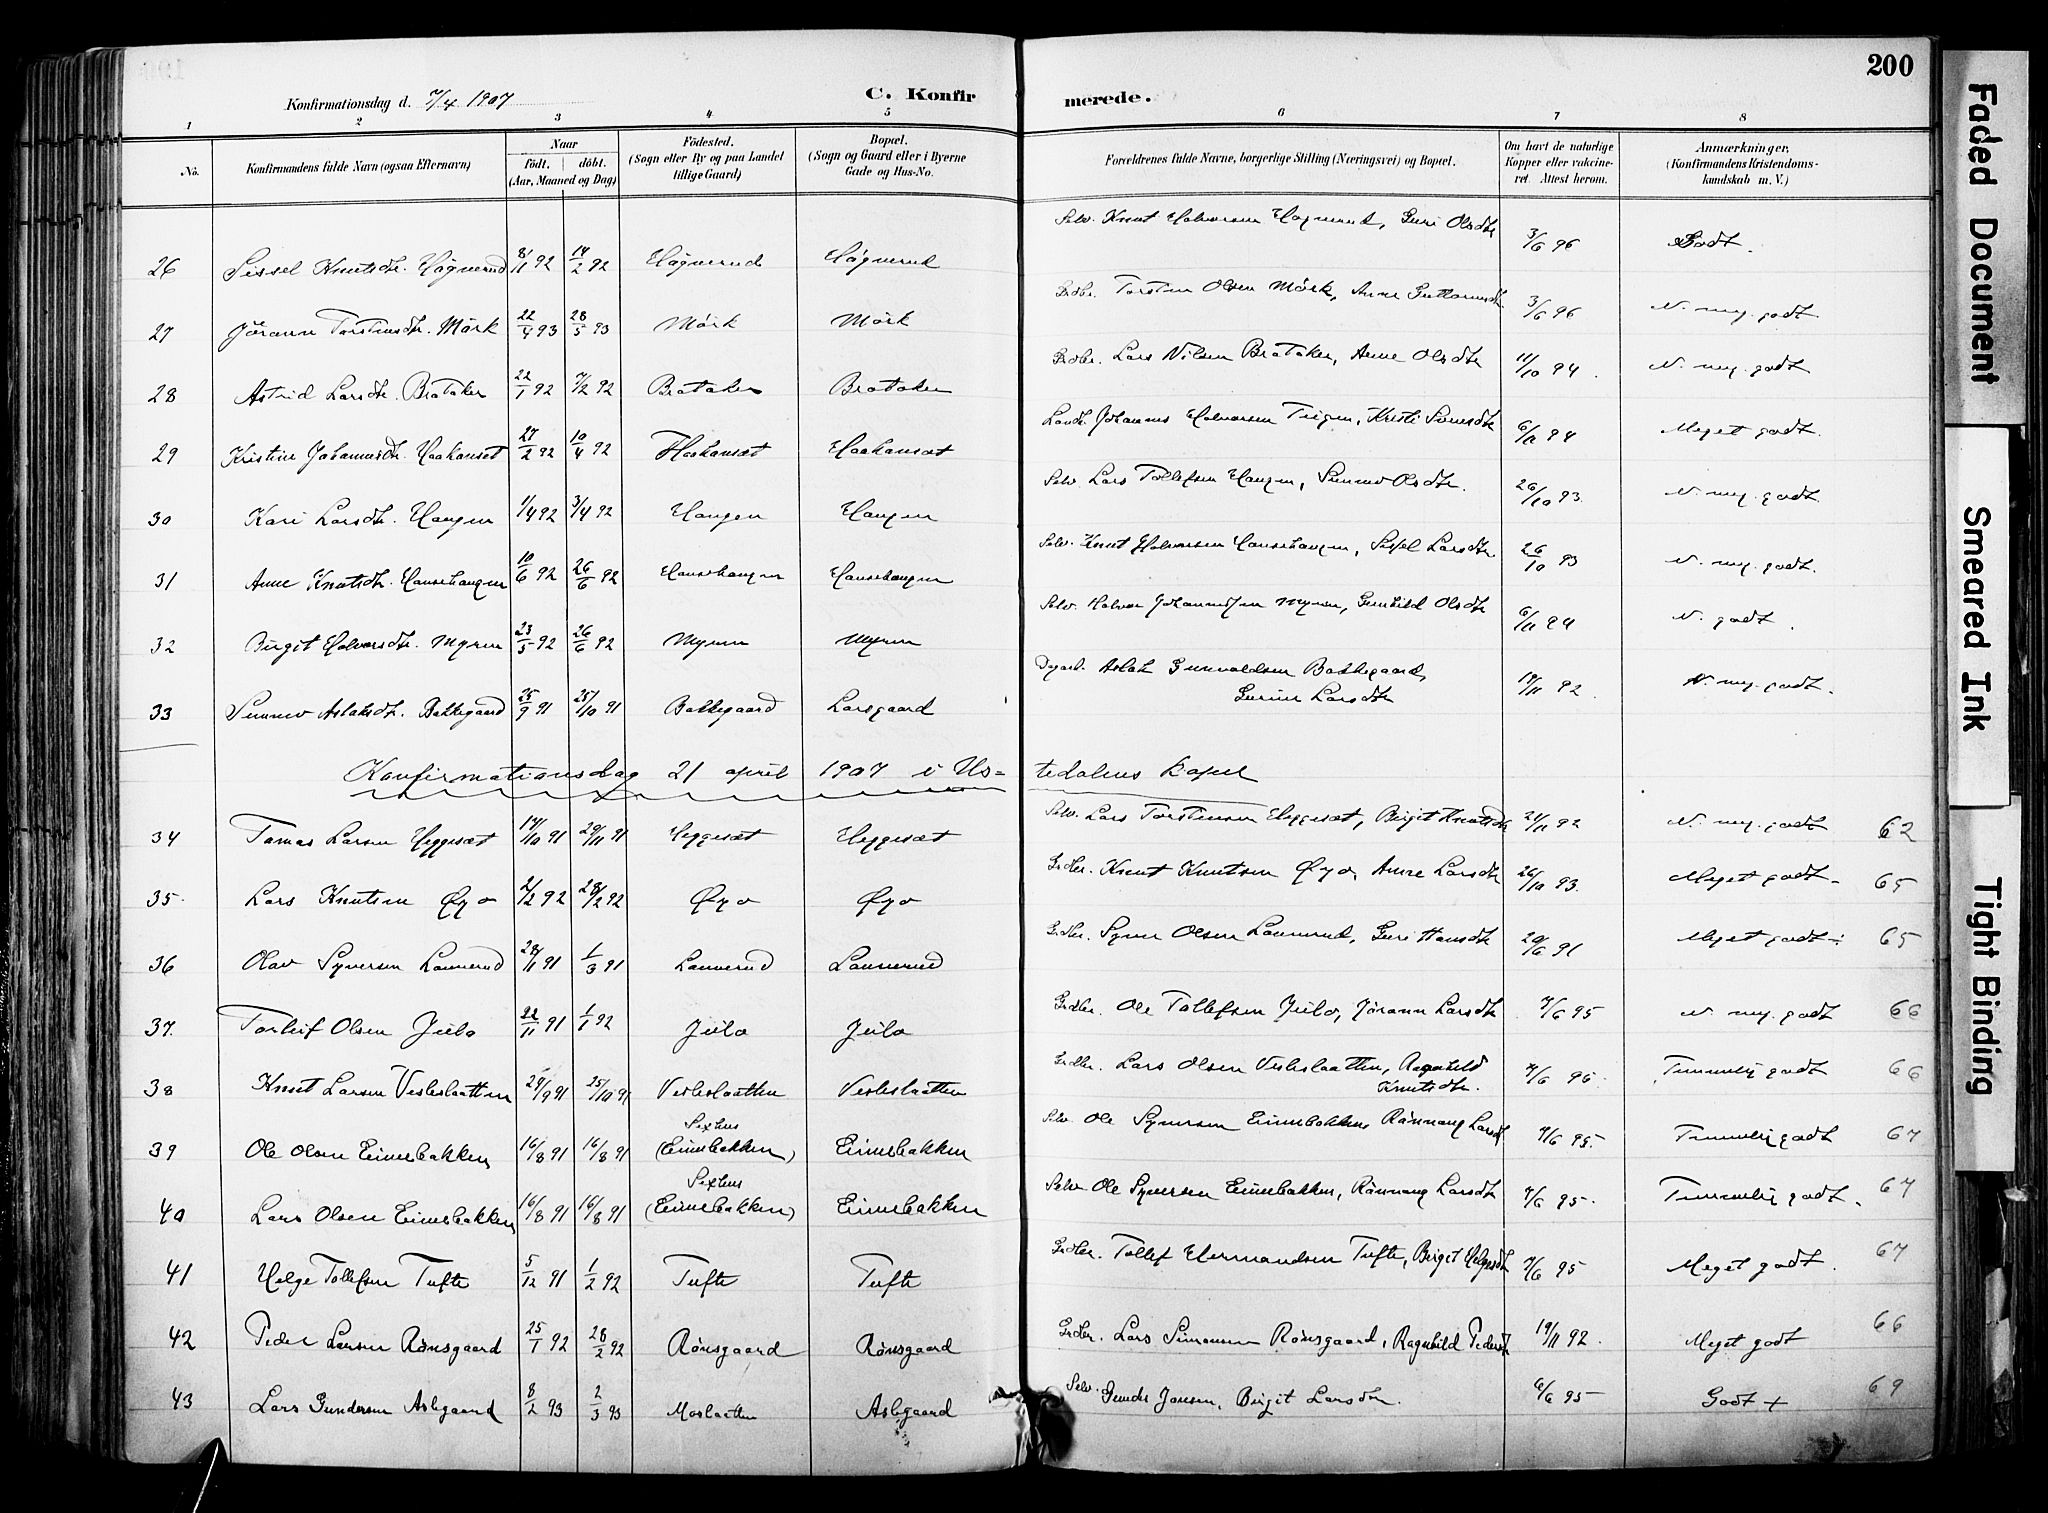 200
Konfirmationsdag d. 7/4 1907
C. Konfirmerede.
1 2 3 4 5 6 7 8
No.
Konfirmandens fulde Navn (ogsaa Efternavn)
Naar
födt. döbt.
(Aar, Maaned og Dag)
Födested.
(Sogn eller By og paa Landet
tillige Gaard)
Bopæl.
(Sogn og Gaard eller i Byerne
Gade og Hus-No.
Forældrenes fulde Navne, borgerlige Stilling (Næringsvei) og Bopæl.
Om havt de naturlige
Kopper eller vaccine-
ret. Attest herom.
Anmærkninger,
(Konfirmandens Kristendoms-
kundskab m. V.)
26 Sissel Knutsdtr. Högnerud 8/11 92 14/2 92 Högnerud Högnerud Selv. Knut Halvorsen Högnerud, Guri Olsdtr 3/6 96 Godt.
27 Jörann Torstensdtr. Mörk 22/4 93 28/5 93 Mörk Mörk Grdbr. Torsten Olsen Mörk, Anne Guttormsdtr 3/6 96 N. my. godt
28 Astrid Larsdtr. Brataker 22/1 92 7/2 92 Brataker Brataker Grdbr. Lars Nilsen Brataker, Anne Olsdtr 11/10 94. N. my. godt
29 Kristine Johannesdtr. Haakanset 27/2 92 10/4 92 Haakanset Haakanset Johannes Halvorsen Teigen, Kristi Svensdtr 6/11 94 Meget godt.
30 Kari Larsdtr. Haugen 1/4 92 3/4 92 Haugen Haugen Selv. Lars Tollefsen Haugen, Sunnev Olsdtr. 26/10 93. N. my. godt
31 Anne Knutsdtr. Hansehaugen 10/6 92 26/6 92 Hansehaugen Hansehaugen Selv. Knut Halvorsen Hansehaugen, Sissel Larsdtr. 26/10 93 N. my. godt.
32 Birgit Halvorsdtr. Myren 23/5 92 26/6 92 Myren Myren Selv. Halvor Johannessen Myren, Gunhild Olsdtr 6/11 94 N. godt.
33 Sunnev Aslaksdtr. Bakkegaard 25/9 91 25/10 91 Bakkegaard Larsgaard Dagarb. Aslak Gunvaldsen Bakkegaard, 19/11 92. N. my. godt.
Gurine Larsdtr
Konfirmationsdag 21 april 1907 i Us-tedalens kapel
34 Tomas Larsen Heggesæt 14/10 91 29/11 91 Heggesæt Heggesæt Selv. Lars Torstensen Heggesæt, Birgit Knutsdtr 21/11 92 N. my. godt 62
35. Lars Knutsen Øyo 2/2 92 28/2 92 Øyo Øyo Grdbr. Knut Knutsen Øyo, Anne Larsdtr 26/10 93. Meget godt. 65
36 Olav Syversen Lauverud 28/11 91 1/3 91 Lauverud Lauverud Grdbr. Syver Olsen Lauverud, Guri Hansdtr 20/6 91 Meget godt 65
37. Torleif Olsen Jeilo 22/11 91 1/1 92 Jeilo Jeilo Grdbr. Ole Tollefsen Jeilo, Jørann Larsdtr 7/6 95 N. my. godt 66
38 Knut Larsen Vesleslaatten 24/9 91 25/10 91 Vesleslaatten Vesleslaatten Grdbr. Lars Olsen Vesleslaatten, Ragnhild 7/6 95. Temmelig godt 66
Knutsdtr.
39 Ole Olsen Eimebakken 16/8 91 16/8 91 Sixhus (Eimebakken) Eimebakken Selv. Ole Syversen Eimebakken, Rønnaug Larsdt 7/6 95. Temmelig godt 67
40 Lars Olsen Eimebakken 16/8 91 16/8 91 Sixhus (Eimebakken) Eimebakken Selv. Ole Syversen Eimebakken, Rønnaug Larsdtr 7/6 95. Temmelig godt. 67
41 Helge Tollefsen Tufte 5/12 91 1/2 92 Tufte Tufte Grdbr. Tollef Hermandsen Tufte, Birgit Helgesdtr 7/6 95 Meget godt. 67
42 Peder Larsen Rønsgaard 25/1 92 28/2 92 Rønsgaard Rønsgaard Grdbr. Lars Simensen Rønsgaard, Ragnhild Pedersdtr 19/11 92. Meget godt 66
43 Lars Gundersen Aslegaard 8/2 93 2/3 93 Moslaatten Aslegaard Selv. Gunder Jonsen, Birgit Larsdtr. 6/6 95 Godt + 69
Faded Document
Smeared Ink
Tight Binding